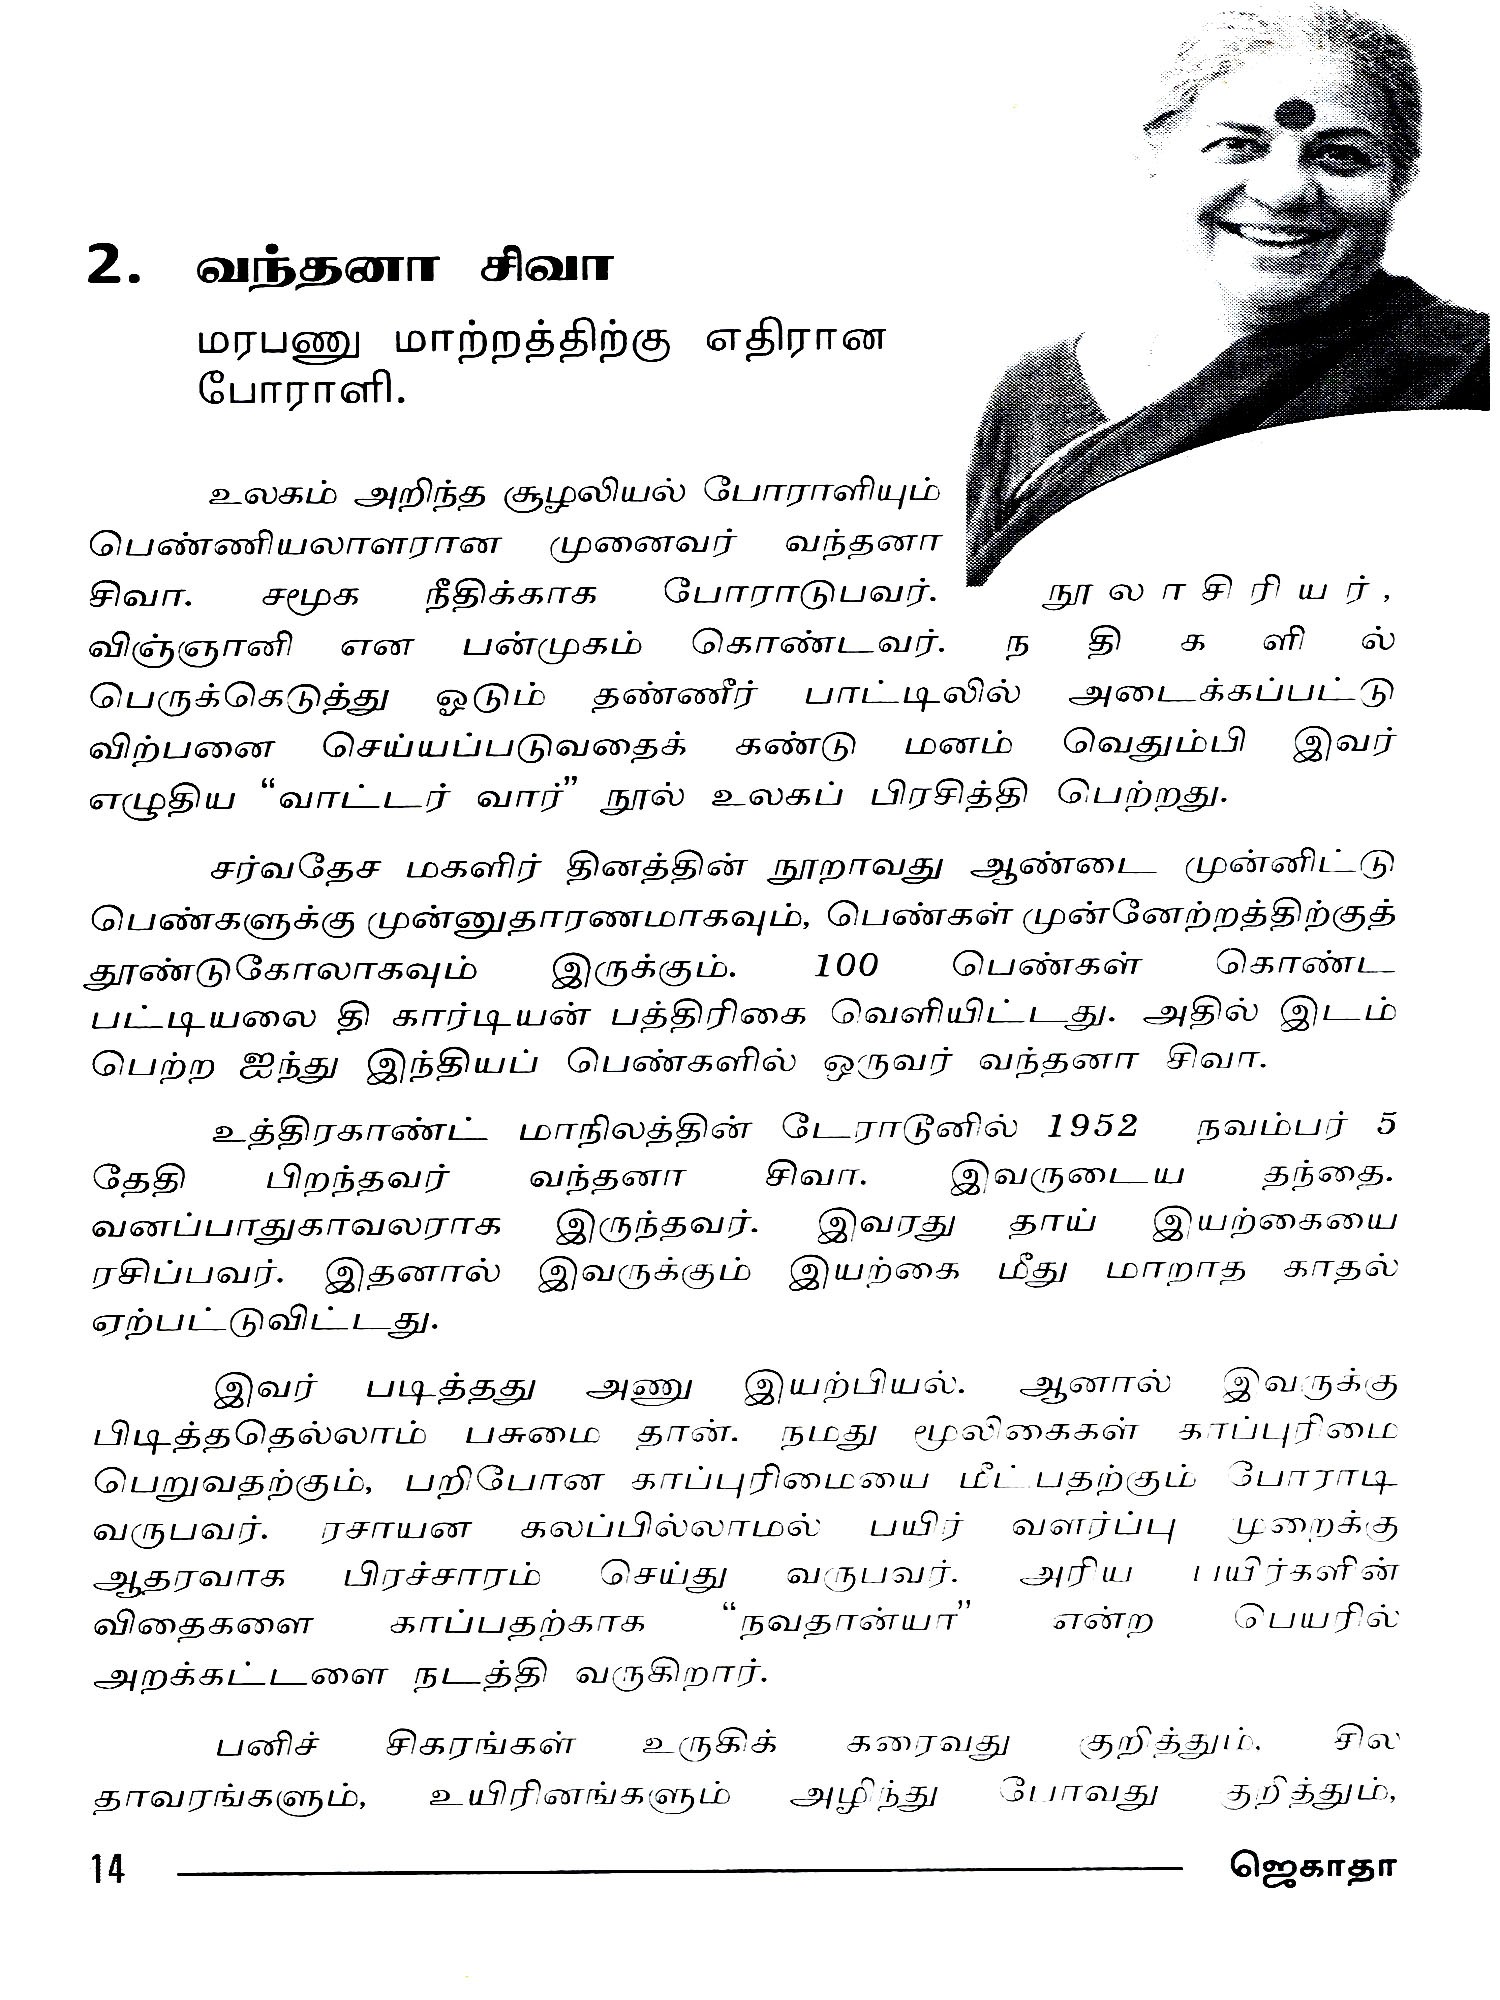 2. வந்தனா சிவா
மரபணு மாற்றத்திற்கு எதிரான
போராளி.
உலகம் அறிந்த சூழலியல் போராளியும்
பெண்ணியலாளரான முனைவர் வந்தனா
சிவா. சமூக நீதிக்காக போராடுபவர். நூலாசிரியர்,
விஞ்ஞானி என பன்முகம் கொண்டவர். நதிகளில்
பெருக்கெடுத்து ஓடும் தண்ணீர் பாட்டிலில் அடைக்கப்பட்டு
விற்பனை செய்யப்படுவதைக் கண்டு மனம் வெதும்பி இவர்
எழுதிய “வாட்டர் வார்” நூல் உலகப் பிரசித்தி பெற்றது.
சர்வதேச மகளிர் தினத்தின் நூறாவது ஆண்டை முன்னிட்டு
பெண்களுக்கு முன்னுதாரணமாகவும், பெண்கள் முன்னேற்றத்திற்குத்
தூண்டுகோலாகவும் இருக்கும். 100 பெண்கள் கொண்ட
பட்டியலை தி கார்டியன் பத்திரிகை வெளியிட்டது. அதில் இடம்
பெற்ற ஐந்து இந்தியப் பெண்களில் ஒருவர் வந்தனா சிவா.
உத்திரகாண்ட் மாநிலத்தின் டேராடூனில் 1952 நவம்பர் 5
தேதி பிறந்தவர் வந்தனா சிவா. இவருடைய தந்தை.
வனப்பாதுகாவலராக இருந்தவர். இவரது தாய் இயற்கையை
ரசிப்பவர். இதனால் இவருக்கும் இயற்கை மீது மாறாத காதல்
ஏற்பட்டுவிட்டது.
இவர் படித்தது அணு இயற்பியல். ஆனால் இவருக்கு
பிடித்ததெல்லாம் பசுமை தான். நமது மூலிகைகள் காப்புரிமை
பெறுவதற்கும், பறிபோன காப்புரிமையை மீட்பதற்கும் போராடி
வருபவர். ரசாயன கலப்பில்லாமல் பயிர் வளர்ப்பு முறைக்கு
ஆதரவாக பிரச்சாரம் செய்து வருபவர். அரிய பயிர்களின்
விதைகளை காப்பதற்காக “நவதான்யா” என்ற பெயரில்
அறக்கட்டளை நடத்தி வருகிறார்.
பனிச் சிகரங்கள் உருகிக் கரைவது குறித்தும். சில
தாவரங்களும், உயிரினங்களும் அழிந்து போவது குறித்தும்,
14 ஜெகாதா